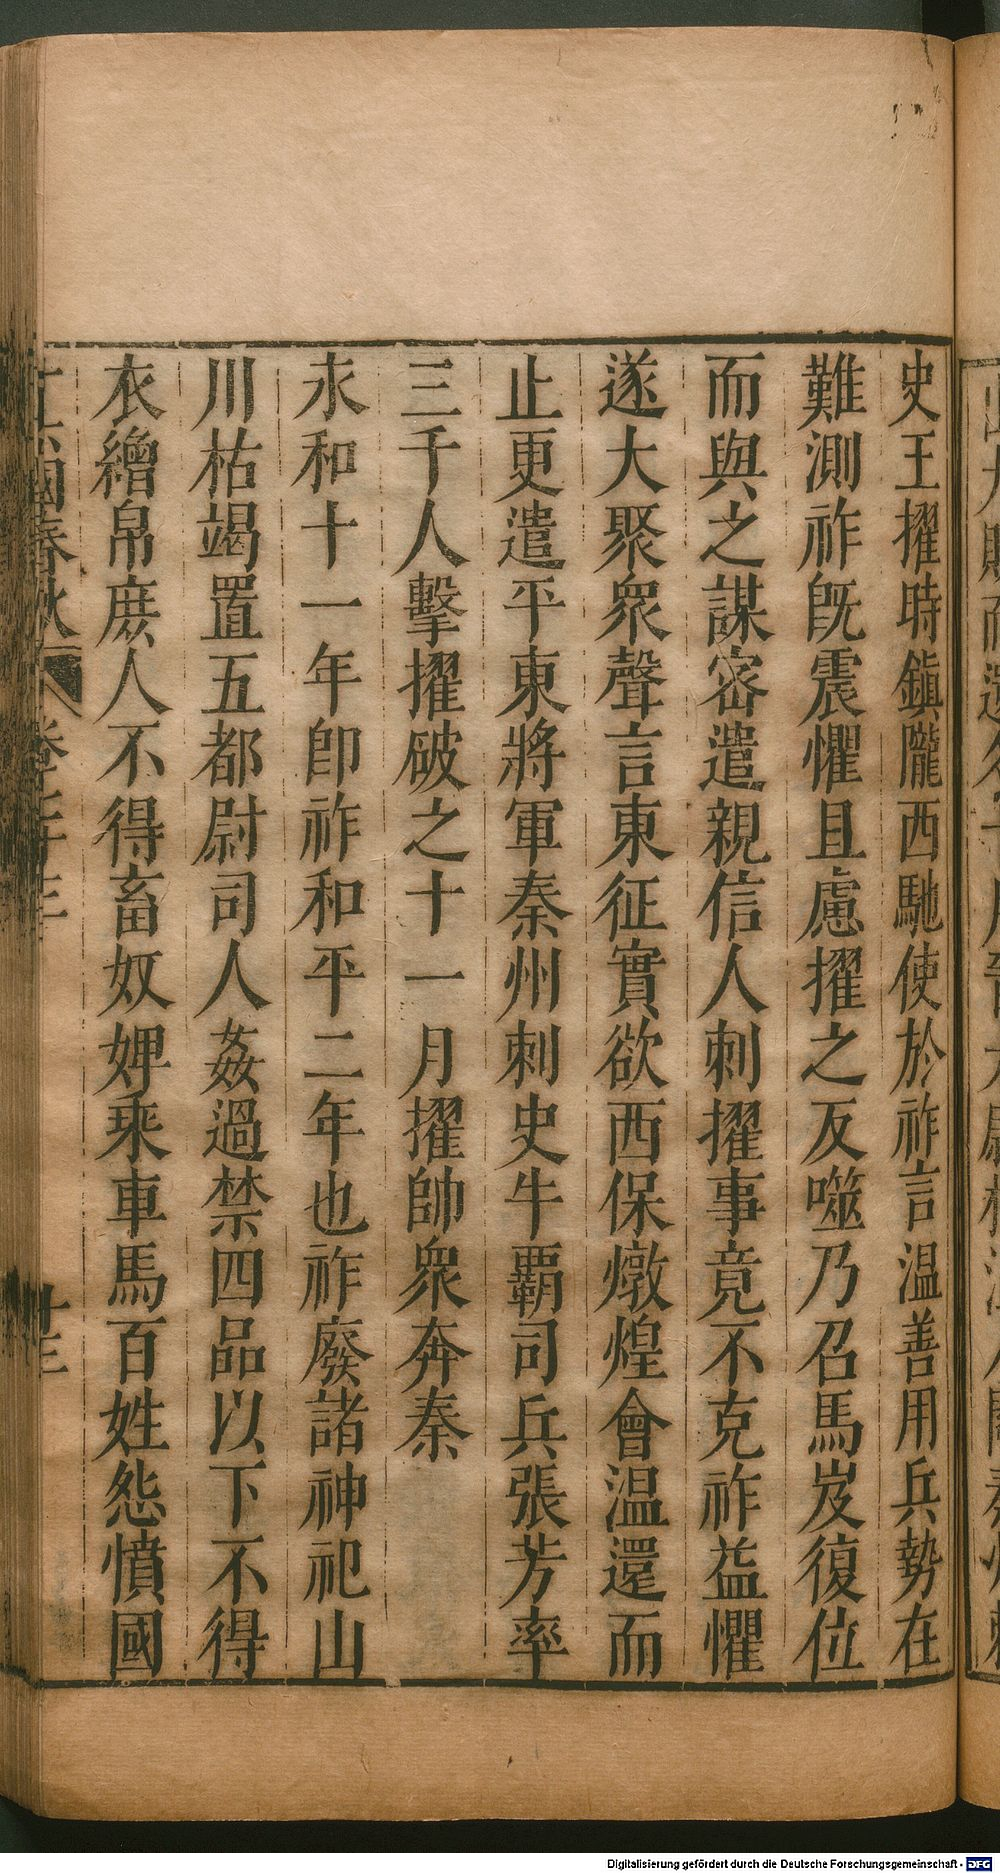 史王擢時鎮隴西馳使於祚言温善用兵勢在
難測祚旣震懼且慮擢之反噬乃召馬岌復位
而與之謀密遣親信人刺擢事竟不克祚益懼
遂大聚衆聲言東征實欲西保燉煌會温還而
止更遣平東將軍秦州刺史牛覇司兵張芳率
三千人擊擢破之十一月擢帥衆奔秦
永和十一年卽祚和平二年也祚廢諸神祀山
川枯竭置五都尉司人姦過禁四品以下不得
衣繒帛庶人不得畜奴婢乘車馬百姓怨憤國
國春秋
Digitalisierung gefördert durch die Deutsche Forschungsgemeinschaft - DFG